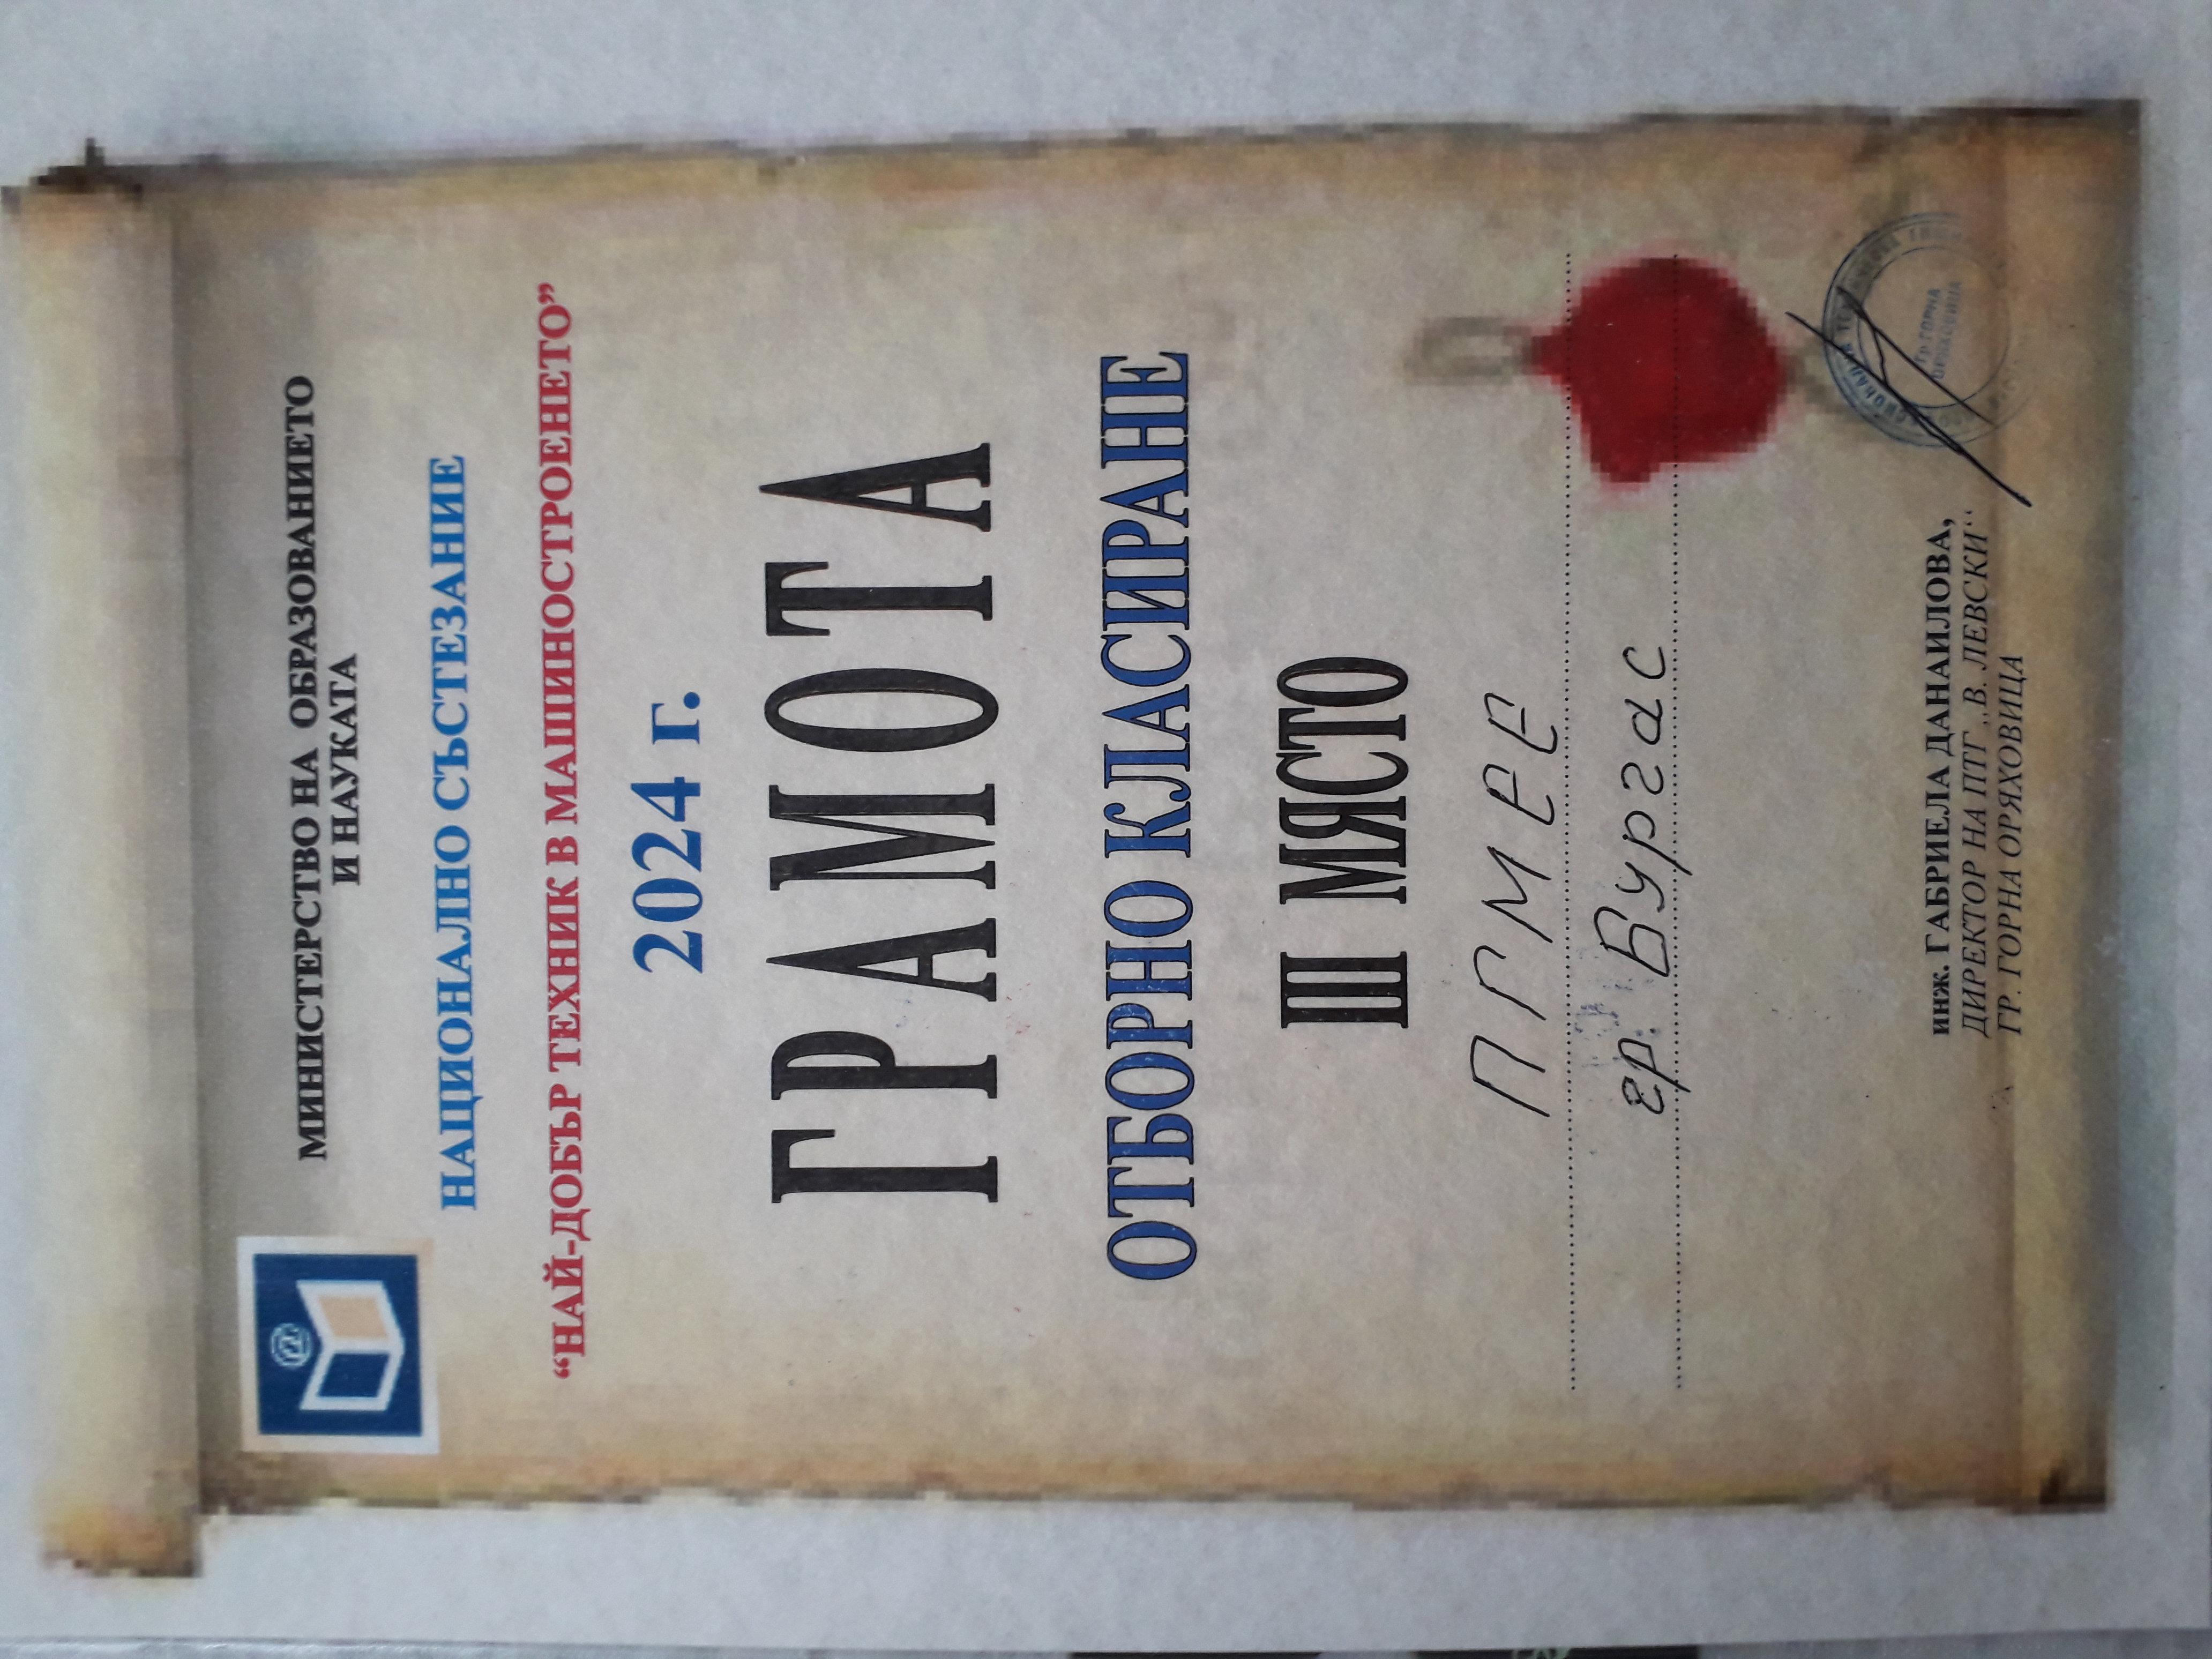 МИНИСТЕРСТВО НА ОБРАЗОВАНИЕТО
И НАУКАТА
НАЦИОНАЛНО СЪСТЕЗАНИЕ
“НАЙ-ДОБЪР ТЕХНИК В МАШИНОСТРОЕНЕТО”
2024 г.
ГРАМОТА
ОТБОРНО КЛАСИРАНЕ
III МЯСТО
ПГМЕЕ
гр. Бургас
инж. ГАБРИЕЛА ДАНАИЛОВА,
ДИРЕКТОР НА ПТГ „В. ЛЕВСКИ“
ГР. ГОРНА ОРЯХОВИЦА
ГР. ГОРНА
ОРЯХОВИЦА